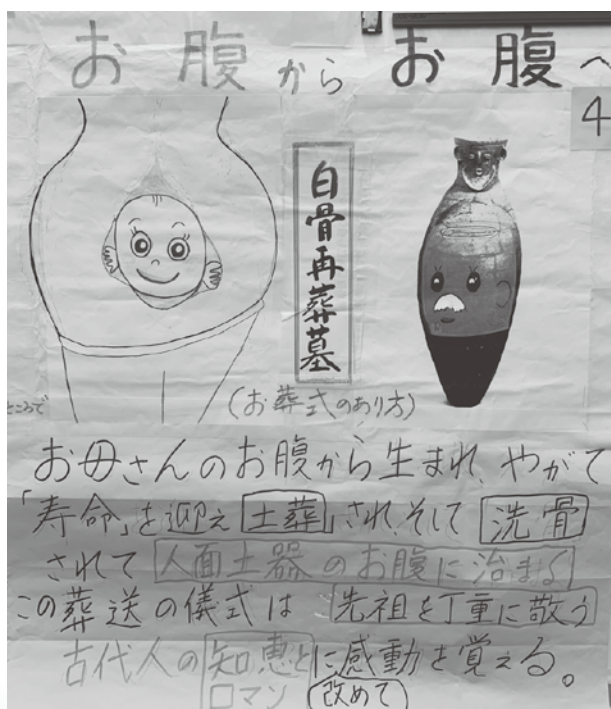 お腹から お腹へ
4
白骨再葬墓
(お葬式のあり方)
ところで
お母さんのお腹から生まれ、やがて
「寿命」を迎え 土葬 され、そして 洗骨
されて 人面土器のお腹に治まる
この葬送の儀式は 先祖を丁重に敬う
古代人の知恵とに感動を覚える。
ロマン 改めて